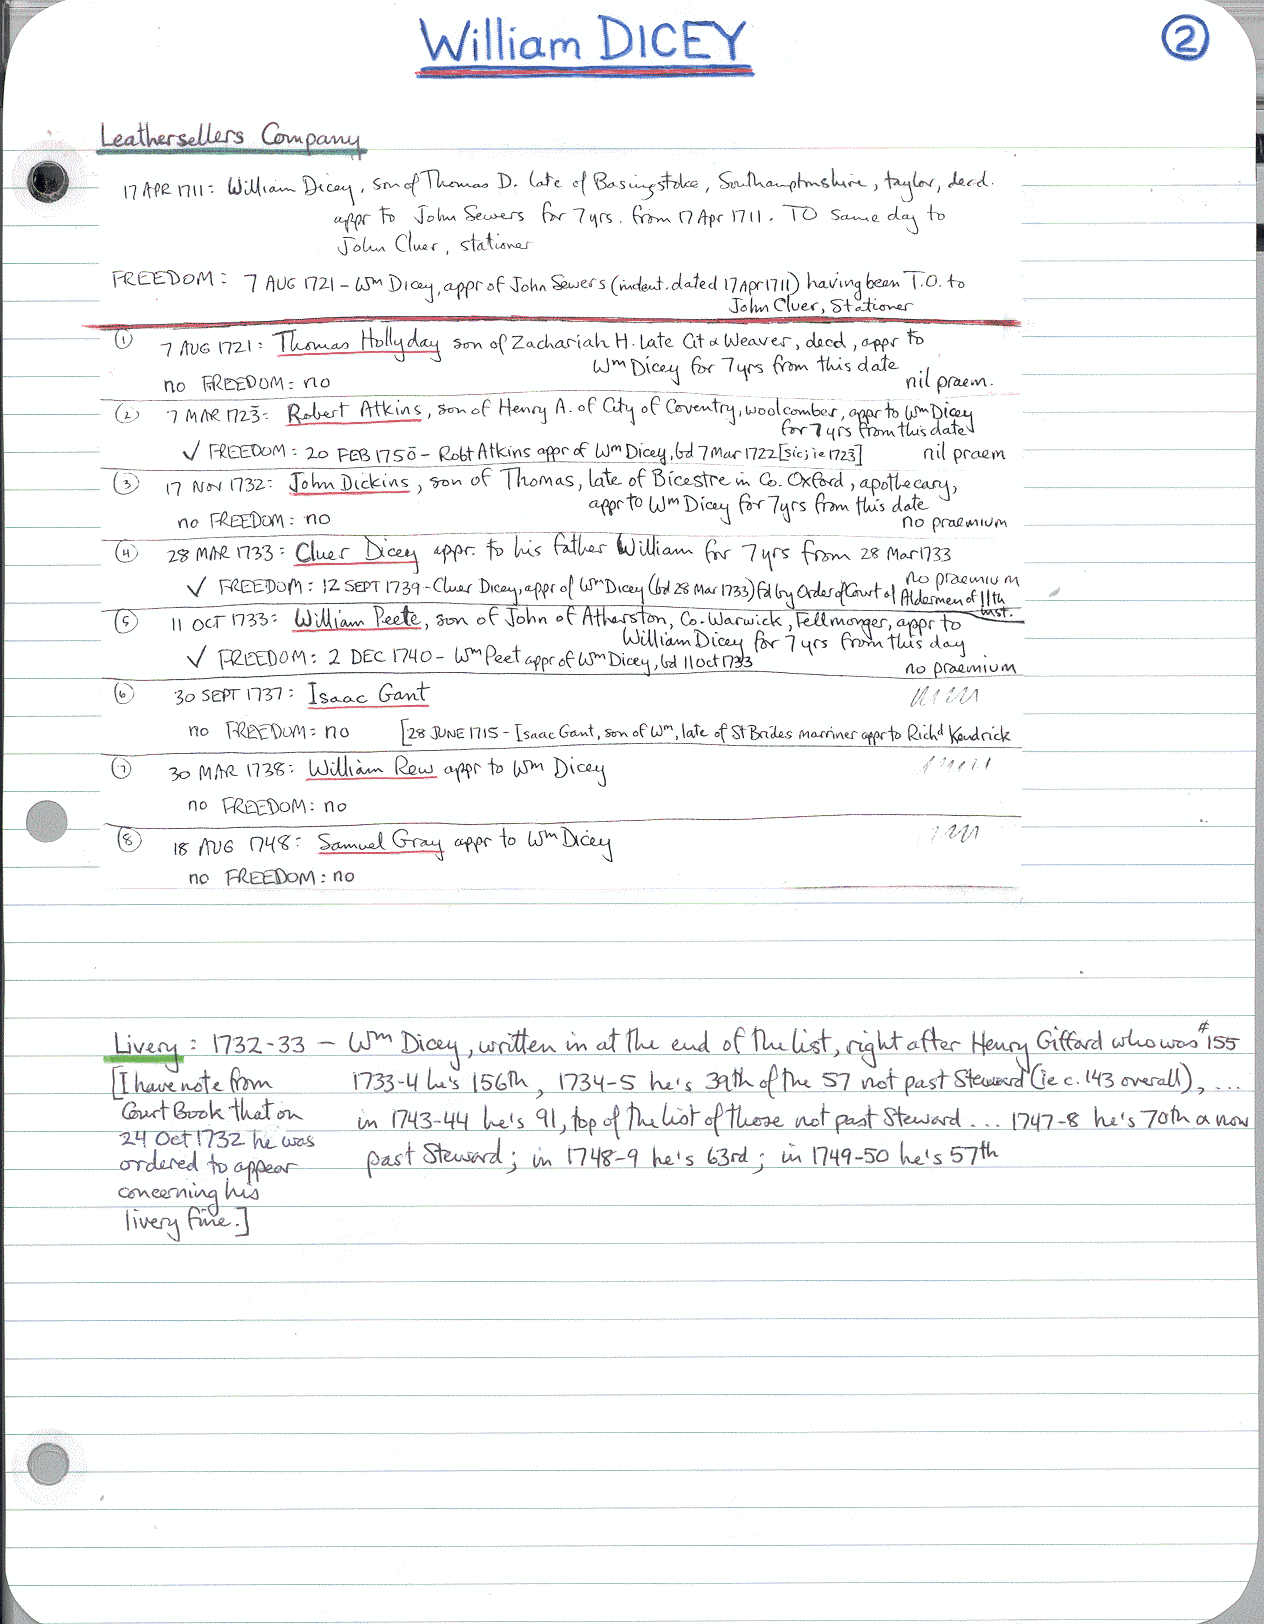 William DICEY
2
Leathersellers Company
17 APR 1711: William Dicey, son of Thomas D. late of Basingstoke, Southamptonshire, taylor, decd.
appr to John Sewers for 7 yrs. from 17 Apr 1711. TO same day to
John Cluer, stationer
FREEDOM: 7 AUG 1721 – Wm Dicey, appr of John Sewers (indent. dated 17 Apr 1711) having been T.O. to
John Cluer, Stationer
1 7 AUG 1721: Thomas Hollyday son of Zachariah H. late Cit & Weaver, decd, appr to
Wm Dicey for 7 yrs from this date
no FREEDOM: no nil praem.
2 7 MAR 1723: Robert Atkins, son of Henry A. of City of Coventry, woolcomber, appr to Wm Dicey
for 7 yrs from this date
✓ FREEDOM: 20 FEB 1750 – Robt Atkins appr of Wm Dicey, bd 7 Mar 1722 [sic; ie 1723] nil praem
3 17 NOV 1732: John Dickins, son of Thomas, late of Bicestre in Co. Oxford, apothecary,
appr to Wm Dicey for 7 yrs from this date
no FREEDOM: no no praemium
4 28 MAR 1733: Cluer Dicey appr. to his father William for 7 yrs from 28 Mar 1733
no praemium
✓ FREEDOM: 12 SEPT 1739 – Cluer Dicey, appr of Wm Dicey (bd 28 Mar 1733) fd by Order of Court of Aldermen of 11th
inst.
5 11 OCT 1733: William Peete, son of John of Atherston, Co. Warwick, Fellmonger, appr to
William Dicey for 7 yrs from this day
✓ FREEDOM: 2 DEC 1740 – Wm Peet appr of Wm Dicey, bd 11 Oct 1733 no praemium
6 30 SEPT 1737: Isaac Gant
no FREEDOM: no [28 JUNE 1715 – Isaac Gant, son of Wm, late of St Brides marriner appr to Richd Kendrick
7 30 MAR 1738: William Rew appr to Wm Dicey
no FREEDOM: no
8 18 AUG 1748: Samuel Gray appr to Wm Dicey
no FREEDOM: no
Livery: 1732-33 – Wm Dicey, written in at the end of the list, right after Henry Giffard who was #155
1733-4 he's 156th, 1734-5 he's 39th of the 57 not past Steward (ie c. 143 overall), ...
in 1743-44 he's 91, top of the list of those not past Steward ... 1747-8 he's 70th & now
past Steward; in 1748-9 he's 63rd; in 1749-50 he's 57th
[I have note from
Court Book that on
24 Oct 1732 he was
ordered to appear
concerning his
livery fine.]